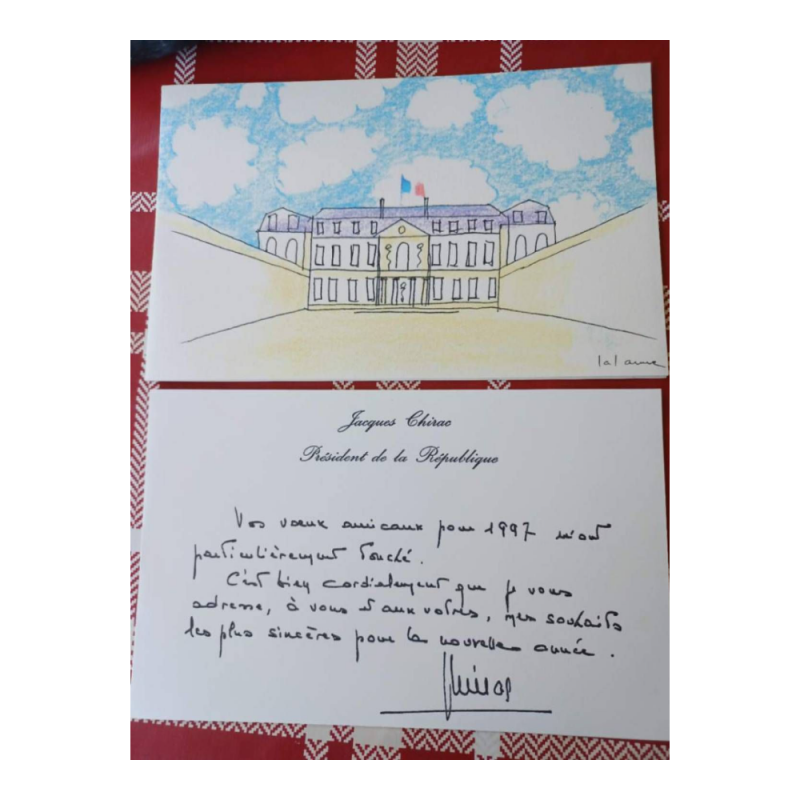 lalanne
Jacques Chirac
Président de la République
Vos vœux amicaux pour 1997 m'ont
particulièrement touché.
C'est bien cordialement que je vous
adresse, à vous et aux vôtres, mes souhaits
les plus sincères pour la nouvelle année.
Chirac